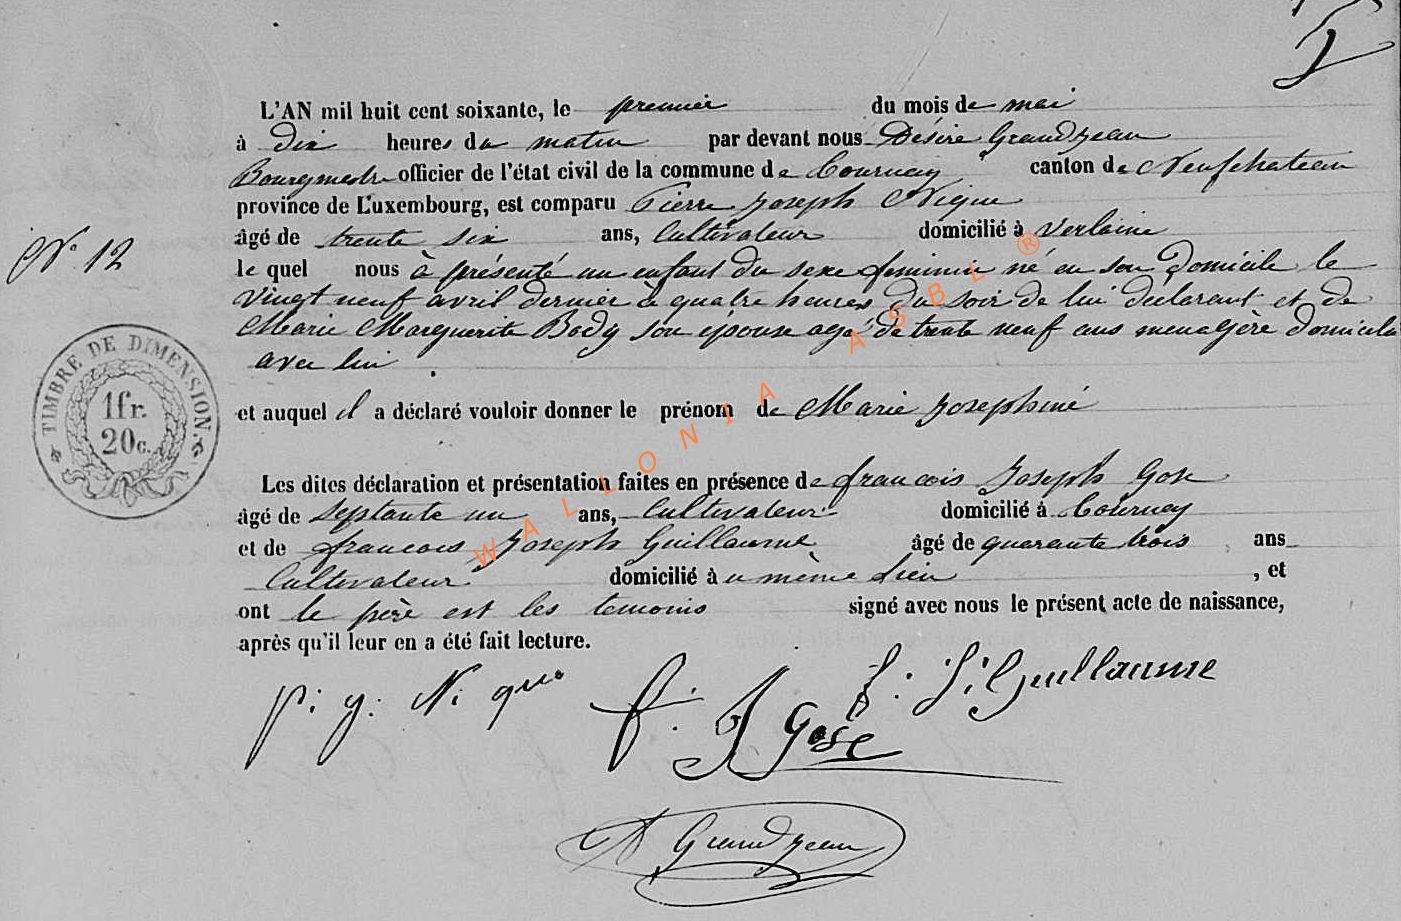 L'AN mil huit cent soixante, le premier du mois de mai
à dix heures du matin par devant nous Désiré Grandjean
Bourgmestre officier de l'état civil de la commune de Tournay canton de Neufchateau
province de Luxembourg, est comparu Pierre Joseph Nique
âgé de trente six ans, Cultivateur domicilié à Verlaine
N° 12
le quel nous à présenté un enfant du sexe feminin né en son Domicile le
vingt neuf avril dernier à quatre heures du soir de lui déclarant et de
Marie Marguerite Body son épouse agé de trente neuf ans menagère domicilié
avec lui
et auquel il a déclaré vouloir donner le prénom de Marie Josephine
TIMBRE DE DIMENSION.
1fr.
20c.
Les dites déclaration et présentation faites en présence de françois Joseph Gose
âgé de septante un ans, Cultivateur domicilié à Tournay
et de francois Joseph Guillaume âgé de quarante trois ans
Cultivateur domicilié à u même Lieu , et
ont le père est les temoins signé avec nous le présent acte de naissance,
après qu'il leur en a été fait lecture.
p: j: Nique
f: J: Guillaume
f: J Gose
D Grandjean
WALLONIA ASBL ®